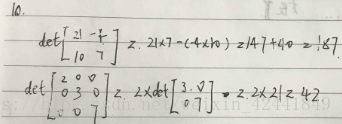 10.
det[21 -4
10 7] = 21×7-(-4×10) = 147+40 = 187
det[2 0 0
0 3 0
0 0 7] = 2×det[3 0
0 7] = 2×21 = 42